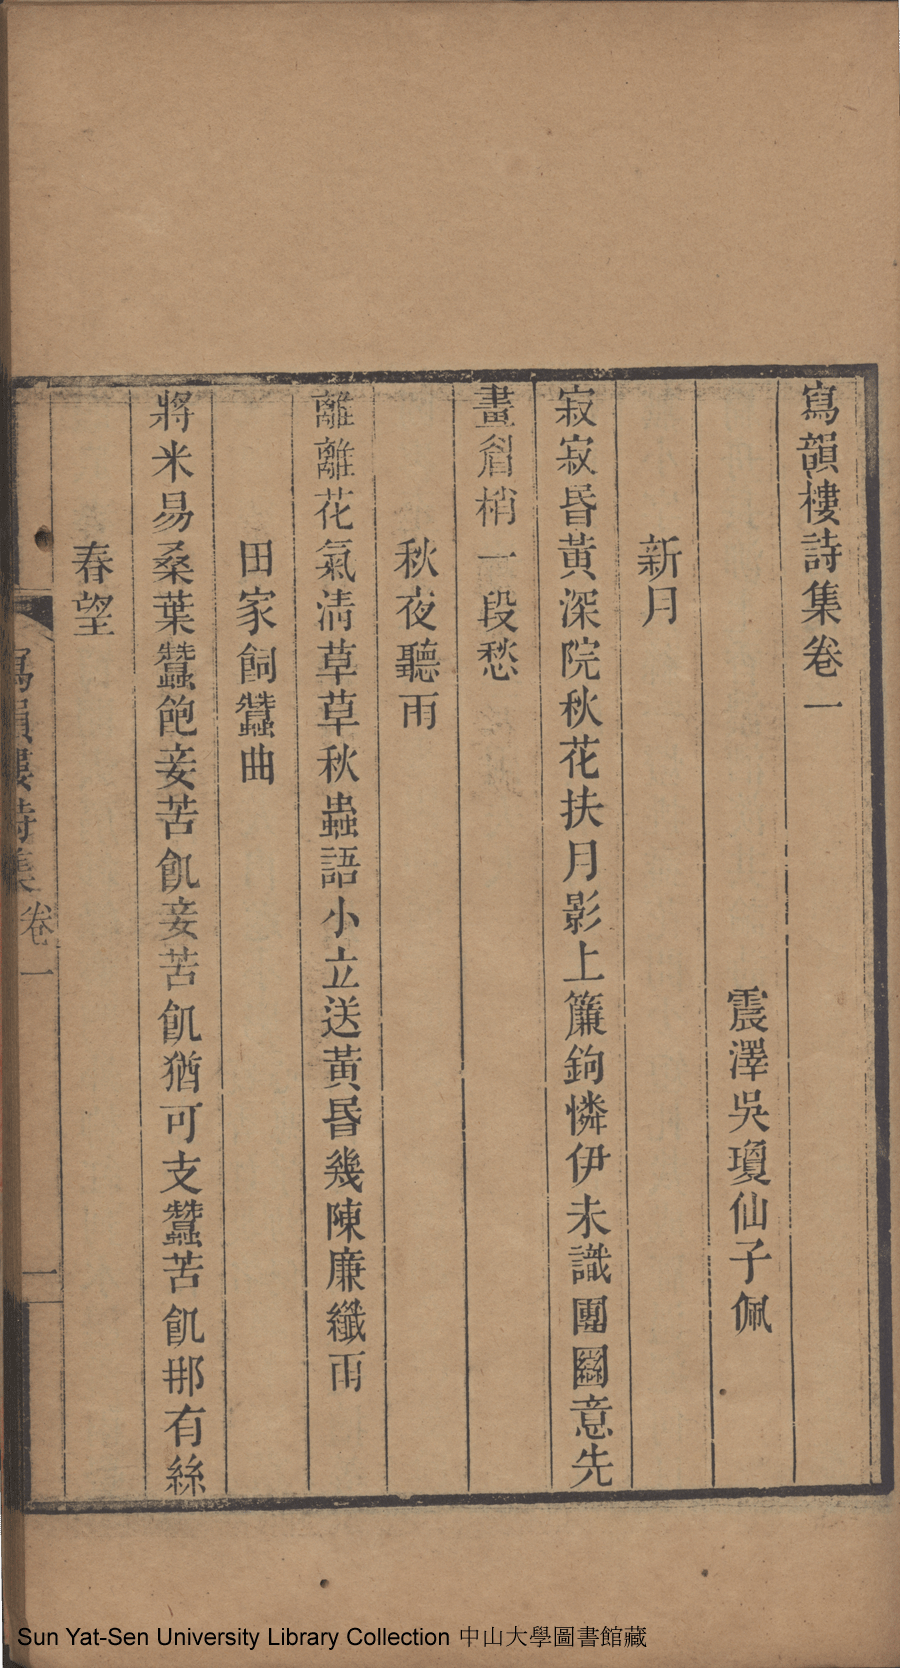 寫韻樓詩集卷一
震澤吳瓊仙子佩
新月
寂寂昬黃深院秋花扶月影上簾鉤憐伊未識團圞意先
畫眉梢一段愁
秋夜聽雨
離離花氣清草草秋蟲語小立送黃昬幾陳廉纖雨
田家飼蠶曲
將米易桑葉蠶飽妾苦飢妾苦飢猶可支蠶苦飢那有絲
春望
寫韻樓詩集
卷一
一
Sun Yat-Sen University Library Collection 中山大學圖書館藏